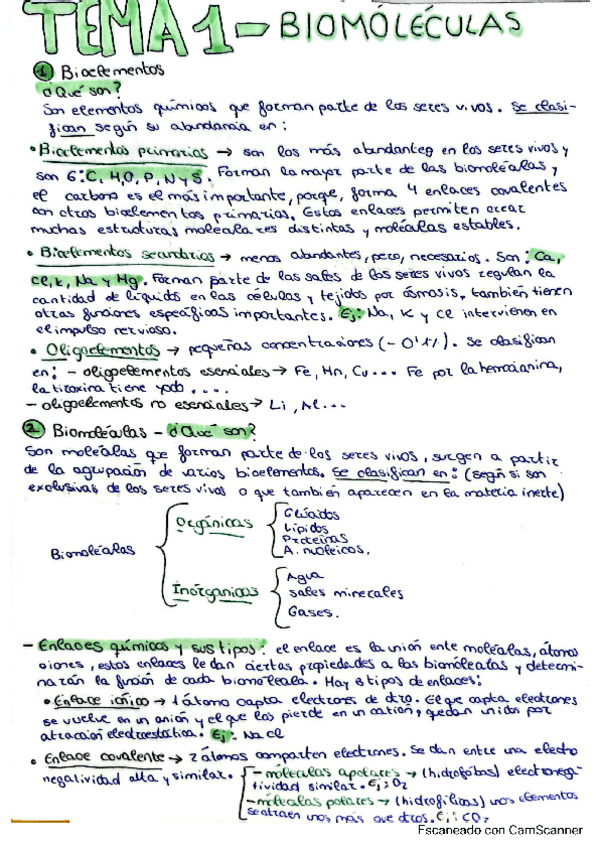 TEMA 1 - BIOMÓLÉCULAS
1 Bioelementos
¿Qué son?
Son elementos químicos que forman parte de los seres vivos. Se clasi-
fican según su abundancia en:
• Bioelementos primarios → son los más abundantes en los seres vivos y
son 6: C, H, O, P, N y S. Forman la mayor parte de las biomoléculas, y
el carbono es el más importante, porqe, forma 4 enlaces covalentes
con otros bioelementos primarios. Estos enlaces permiten crear
muchas estructuras moleculares distintas y moléculas estables.
• Bioelementos secundarios → menos abundantes, pero, necesarios. Son: Ca,
Cl, K, Na y Mg. Forman parte de las sales de los seres vivos regulan la
cantidad de líquidos en las células y tejidos por ósmosis, también tienen
otras funciones específicas importantes. Ej: Na, K y Cl intervienen en
el impulso nervioso.
• Oligoelementos → pequeñas concentraciones (- 0'1%). Se clasifican
en: - oligoelementos esenciales → Fe, Mn, Cu... Fe por la hemocianina,
la tiroxina tiene yodo ....
- oligoelementos no esenciales → Li, Al...
2 Biomoléculas - ¿Qué son?
Son moléculas que forman parte de los seres vivos, surgen a partir
de la agrupación de varios bioelementos. Se clasifican en: (según si son
exclusivas de los seres vivos o que también aparecen en la materia inerte)
Biomoléculas
Orgánicas
Glúcidos
Lípidos
Proteínas
A. nucleicos.
Inórganicas
Agua
sales minerales
Gases.
- Enlaces químicos y sus tipos: el enlace es la unión ente moléculas, átomos
o iones, estos enlaces le dan ciertas propiedades a las biomoléculas y determi-
narán la función de cada biomolécula. Hay 3 tipos de enlaces:
• Enlace iónico → 1 átomo capta electrones de otro. El que capta electrones
se vuelve en un anión y el que los pierde en un catión, quedan unidos por
atracción electroestática. Ej: NaCl
• Enlace covalente → 2 átomos comparten electrones. Se dan entre una electro
negatividad alta y similar.
- móleculas apolares → (hidrofóbas) electronega-
tividad similar. Ej: O2
- móleculas polares → (hidrofílicas) unos elementos
se atraen unos más que otros. Ej: CO2
Escaneado con CamScanner